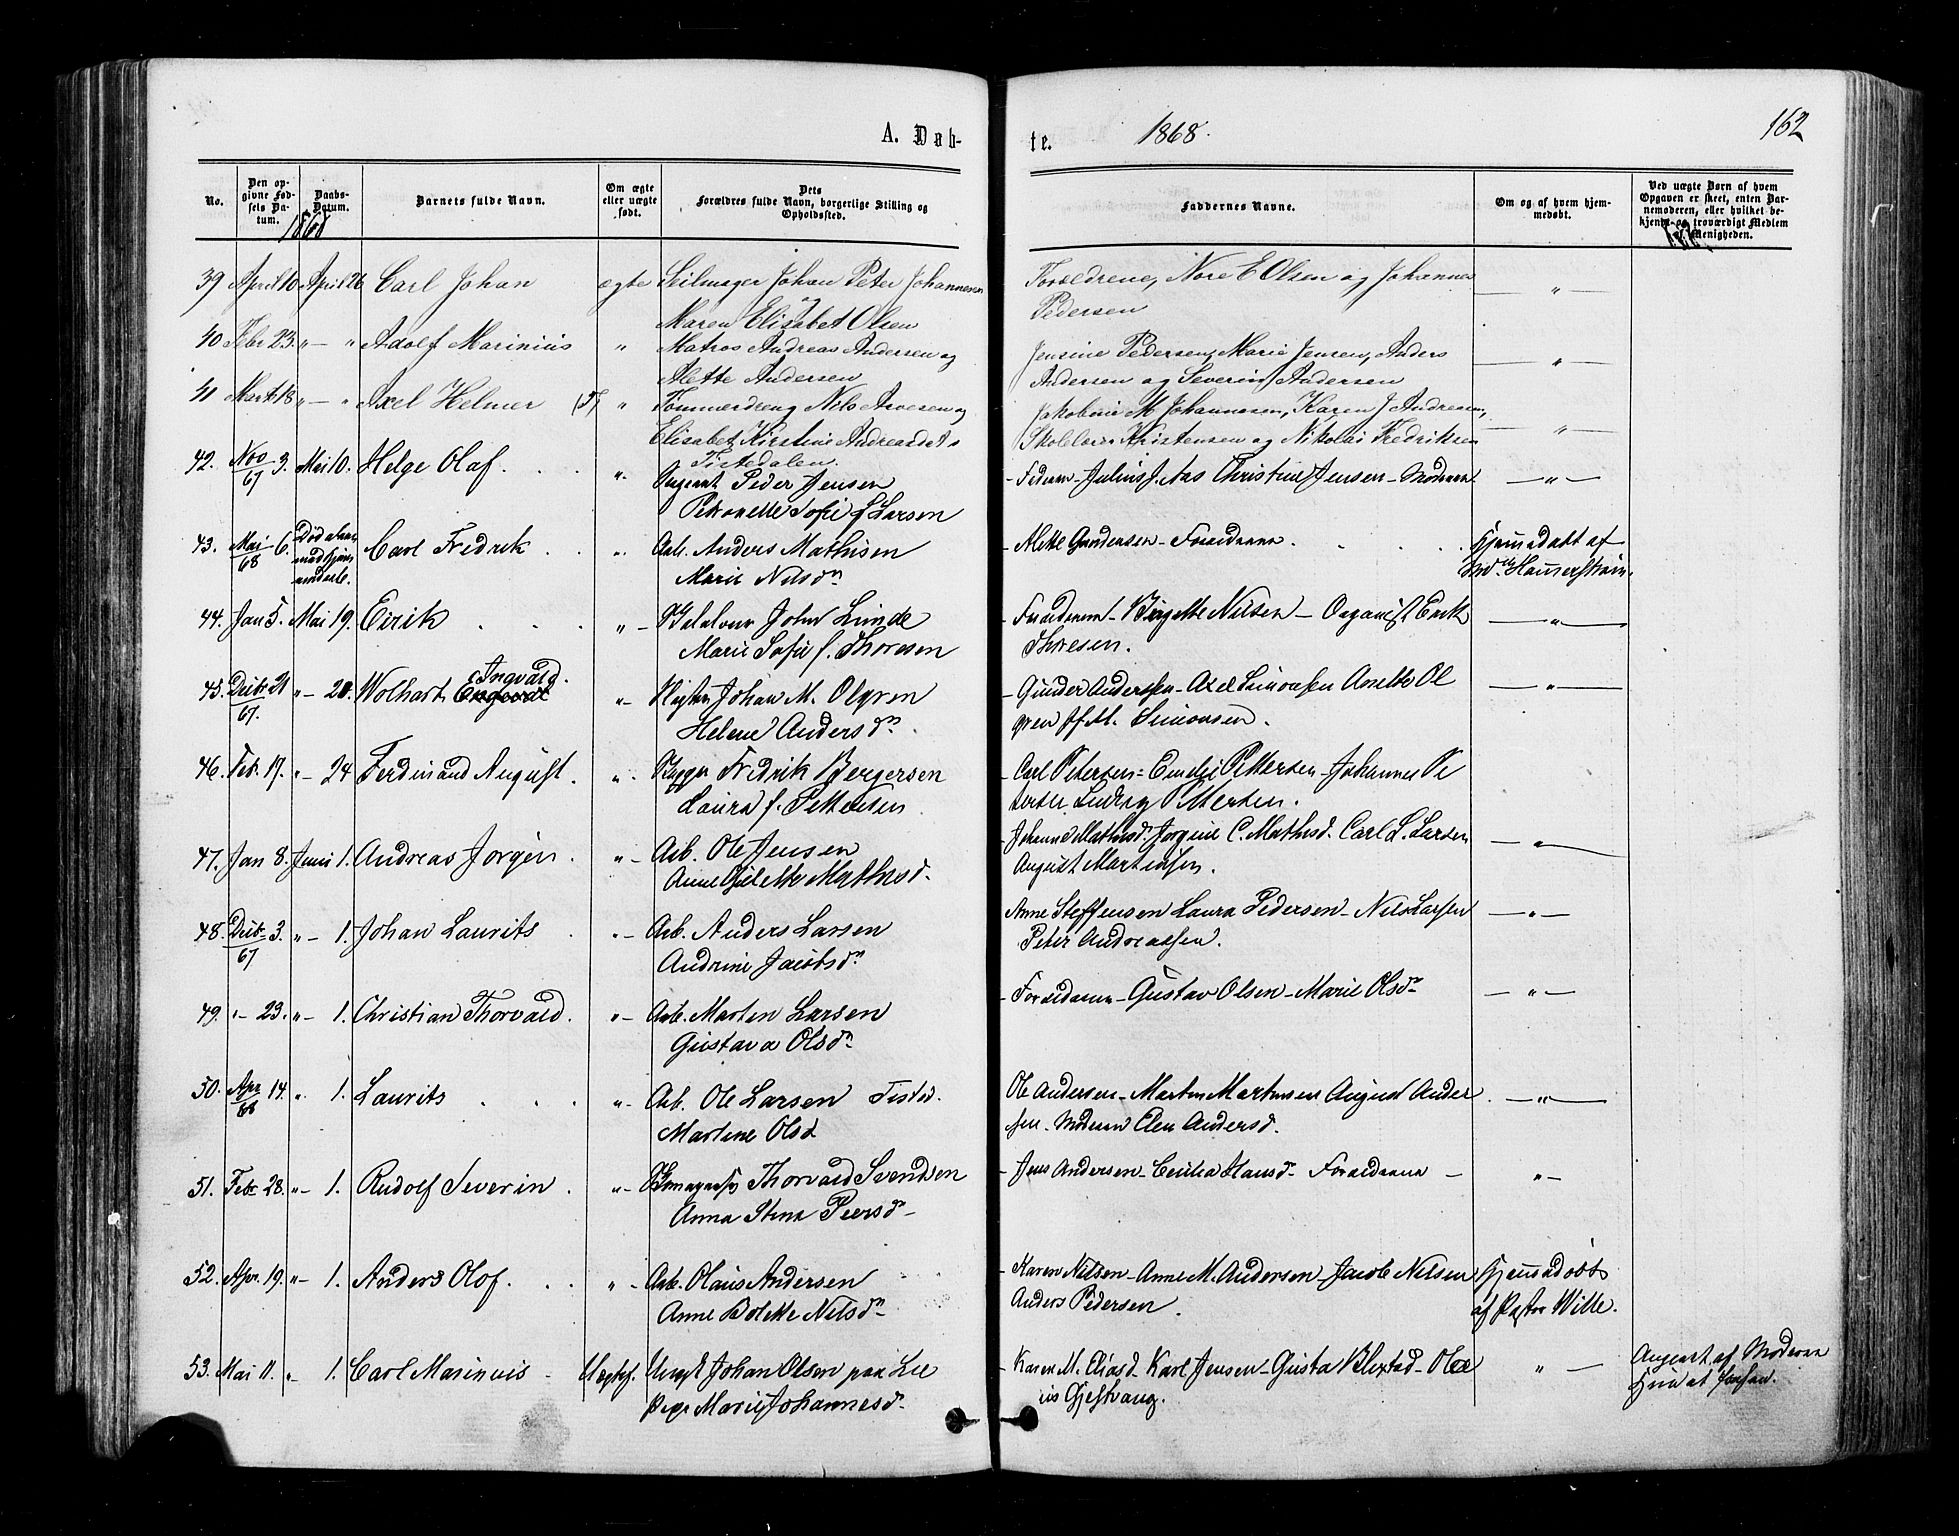 A. Døb-
te.
1868.
162
No.
Den op-
givne Fød-
sels Da-
tum.
Daabs-
Datum.
Barnets fulde Navn.
Om ægte
eller uægte
født.
Dets
Forældres fulde Navn, borgerlige Stilling og
Opholdssted.
Faddernes Navne.
Om og af hvem hjem-
medøbt.
Ved uægte Børn af hvem
Opgaven er skeet, enten Bar-
nemoderen, eller hvilket be-
kjendt og troværdigt Medlem
af Menigheden.
1868
39 April 10 April 26 Carl Johan ægte Seilmager Johan Peter Johannesen Forældrene, Nore E Olsen og Johannes — " —
og Pedersen
Maren Elisabet Olsen
40 Febr 23. " — " Adolf Marinius " Matros Andreas Andersen og Jensine Pedersen, Marie Jensen, Anders — " —
Mette Andersen Andersen og Severin Andersen
41 Marts 18 " — " Axel Helmer (T) " Tømmerdreng Nils Arvesen og Jakobine M Johannesen, Karen J Andresen,
Elisabet Kirstine Andreasdet Kristensen og Nikolai Fredriksen — " —
Tistedalen.
42. Nov 67 3. Mai 10. Helge Olaf. " Sergeant Peder Jensen - Faderen - Julius J. Aas Christine Jensen - Moderen — " —
Petronelle Sofie f Larsen
43. Mai 68 6. Død Carl Fredrik " Arb. Anders Mathisen - Mette Gundersen - Forældrene Hjemmedøbt af
Marie Nilsdn
44. Jan 5. Mai 19. Eirik " — John Lunde - Forældrene - Birgitte Nilsen - Organist Erik — " —
Marie Sofie f. Thoresen Thoresen.
Ingvald.
45. Decbr 21 67. " — 20. Wolhart Engevald " — Johan M. Olgren - Gunder Anderssen - Axel Simonsen Anette Ol — " —
Helene Andersdn. gren Simonsen.
46. Feb. 17. " — 24 Ferdinand August. " Fredrik Bergersen - Carl Petersen - Emelie Pettersen - Johannes Pe
Laura f. Pettersen terser Ludvig Pettersen.
47. Jan 8. Juni 1. Andreas Jørgen. " — Arb. Ole Jensen - Johanne Mathisd. Jørgine C. Mathisd. Carl L. Larsen — " —
Anne Mathisd. August Martinsen.
48. Decbr 67 3. " — 1. Johan Laurits " — Arb. Anders Larsen Anne Steffensen Laura Pedersen - Nils Larsen — " —
Andrine Jacobsdn Peter Andreassen.
49. " — 23. " — 1. Christian Thorvald. " — Arb. Morten Larsen - Forældrene - Gustav Olsen - Marie Olsdn — " —
Gustava Olsdn
50. Apr 68 14. " 1. Laurits " — Arb. Ole Larsen Tisted. Ole Andersen - Morten Martinsen August Ander — " —
Martine Olsd sen. Moderen Elen Andersd.
51. Febr 28. " — 1. Rudolf Severin " — Thorvald Svendsen - Jens Andersen - Cecilia Hansd - Forældrene — " —
Anna Stina Peersdn
52. Apr. 19. " — 1. Anders Olof. " — Arb. Olaus Andersen - Karen Nilsen - Anne M. Andersen - Jacob Nilsen Hjemmedøbt
Anne Bolette Nilsdn Anders Pedersen. af Pastor Wille.
53. Mai 11. " 1. Carl Marinius Uægte. Ungk Johan Olsen paa Lie - Karen M. Eliasd - Karl Jensen - Gusta Blixtad - Ola " — Angivet af Moderen
Pige Marie Johannesd. us Gjestvang.